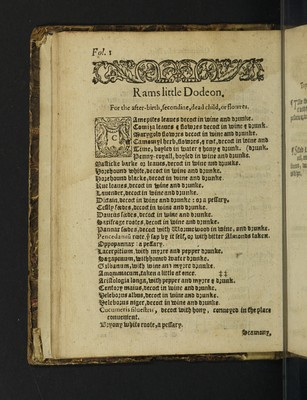 Fol. 1
Rams little Dodeon,
For the after-birth, secondine, dead child, or flowers.
Ameptes leaves decoct in wine and drunke.
Coniza leaves & flowres decoct in wine & drunk.
Marygold flowres decoct in wine and drunke.
Camomyl herb, flowres, & rot, decoct in wine and
Time, boyled in water & hony & drunk. drunke.
Penny-royall, boyled in wine and drunke.
Mastick barke or leaues, decoct in wine and drunke.
Horehound white, decoct in wine and drunke.
Horehound blacke, decoct in wine and drunke.
Rue leaues, decoct in wine and drunke.
Lauender, decoct in wine and drunke.
Dictain, decoct in wine and drunke: or a pessary.
Cessly sædes, decoct in wine and drunke.
Daucus sædes, decoct in wine and drunke.
Saxifrage rootes, decoct in wine and drunke.
Pannax sædes, decoct with Wormewood in wine, and drunk.
Peucedanū rote. ẏ sap by it self, or with bitter Almonds taken.
Oppopannax: a pessary.
Laserpitium, with myrre and pepper drunke.
Sagapænum, with honied water drunke.
Galbanum, with wine and myrre drunke.
Ammoniacum, taken a little at once.
Aristologia longa, with pepper and myrre & drunk.
Centory maius, decoct in wine and drunke.
Heleborus albus, decoct in wine and drunke.
Heleborus niger, decoct in wine and drunke.
Cucumeris siluestris, decoct with hony, conueyed in the place
conuenient.
Bryony white roote, a pessary.
Scamony,